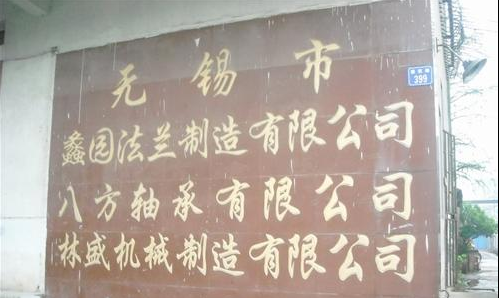 无锡市
蠡园法兰制造有限公司
八方轴承有限公司
林盛机械制造有限公司
399